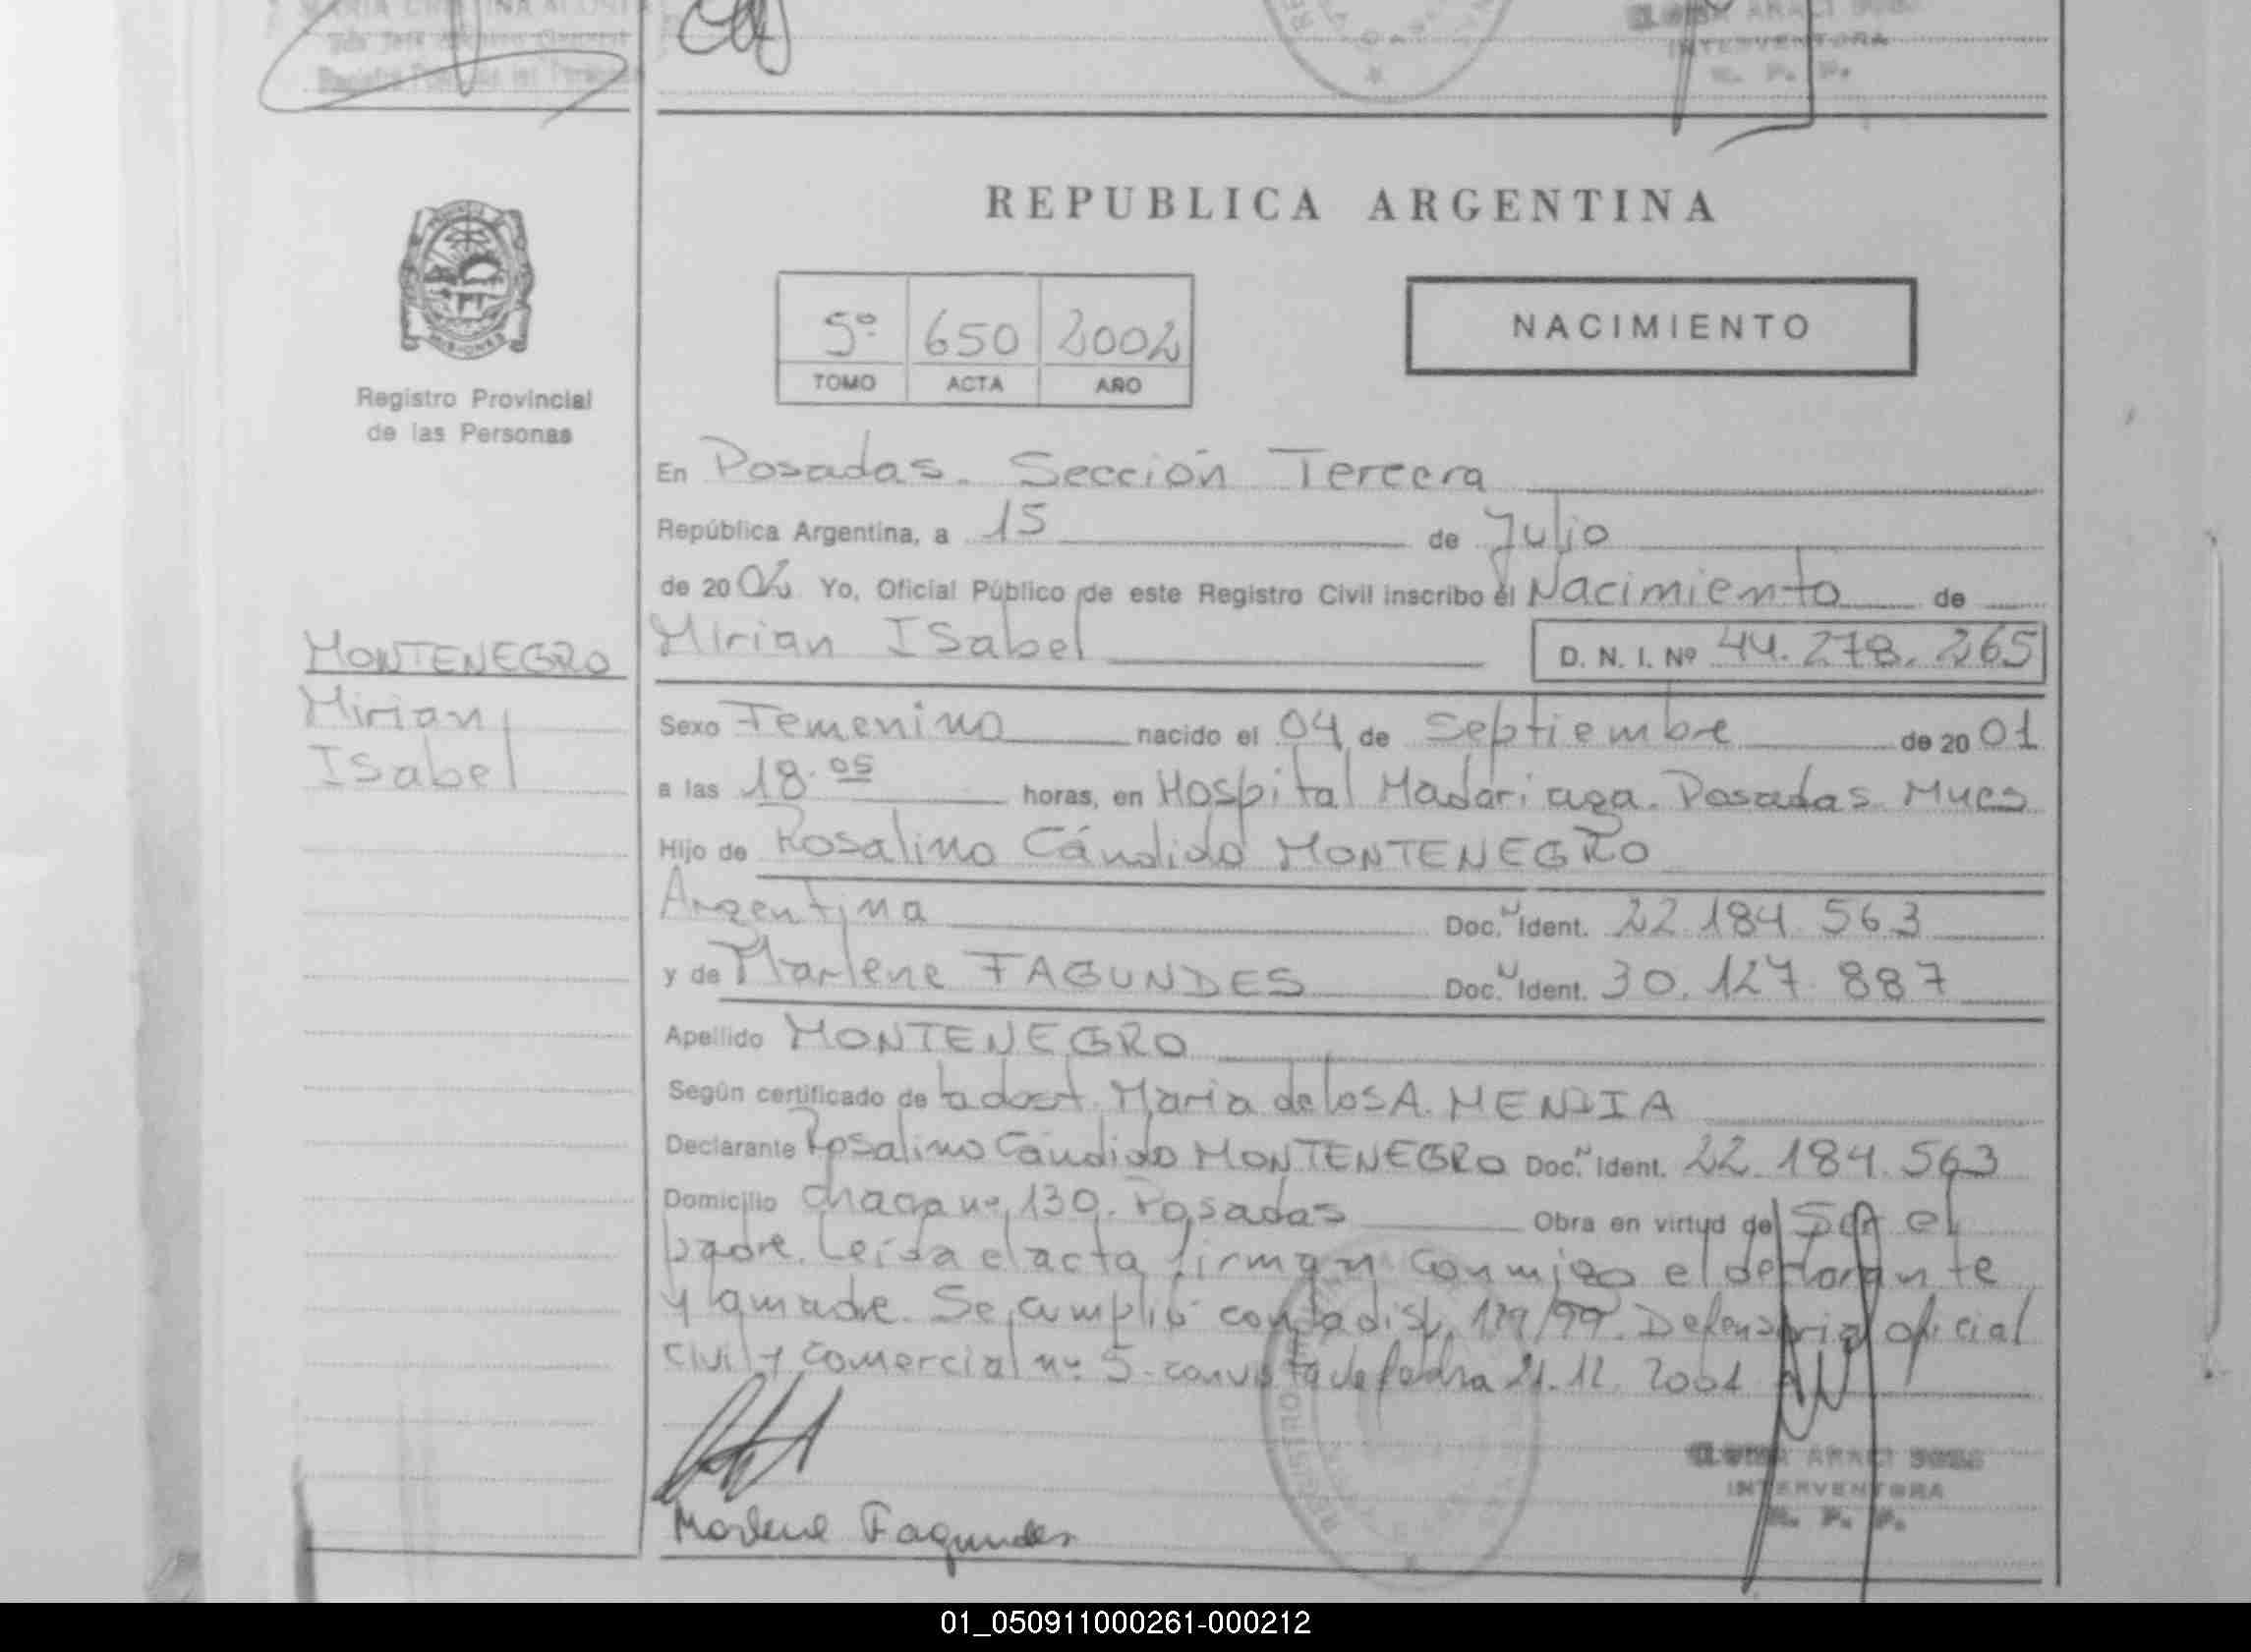 MARIA CRISTINA ACOSTA
INTERVENTORA
R. P. P.
REPUBLICA ARGENTINA
MISIONES
Registro Provincial
de las Personas
5º 650 2002
TOMO ACTA AÑO
NACIMIENTO
En Posadas. Sección Tercera
República Argentina, a 15 de Julio
de 2002 Yo, Oficial Público de este Registro Civil inscribo el Nacimiento de
Mirian ISabel D. N. I. Nº 44.278.265
MONTENEGRO
Mirian
ISabel
Sexo Femenino nacido el 04 de Septiembre de 2001
a las 18.05 horas, en Hospital Madariaga. Posadas Mnes
Hijo de Rosalino Cándido MONTENEGRO
Argentina Doc. Ident. 22.184.563
y de Marlene FAGUNDES Doc. Ident. 30.127.887
Apellido MONTENEGRO
Según certificado de María de los A. MENDIA
Declarante Rosalino Cándido MONTENEGRO Doc. Ident. 22.184.563
Domicilio Chacra nº 130. Posadas Obra en virtud de Ser el
padre. Leída el acta firman conmigo el declarante
y la madre. Se cumplió con la disp. 179/99. Defensoría oficial
Civil y Comercial nº 5. con vista de fecha 21.12.2001
REGISTRO
Marlene Fagundes
ARACI
INTERVENTORA
R. P. P.
01_050911000261-000212